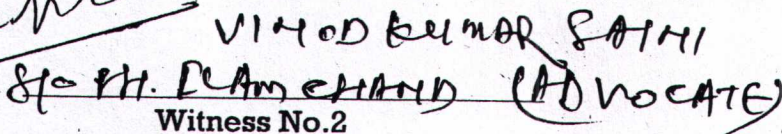 VINOD KUMAR SAINI
S/o SH. ILAM CHAND (ADVOCATE)
Witness No.2